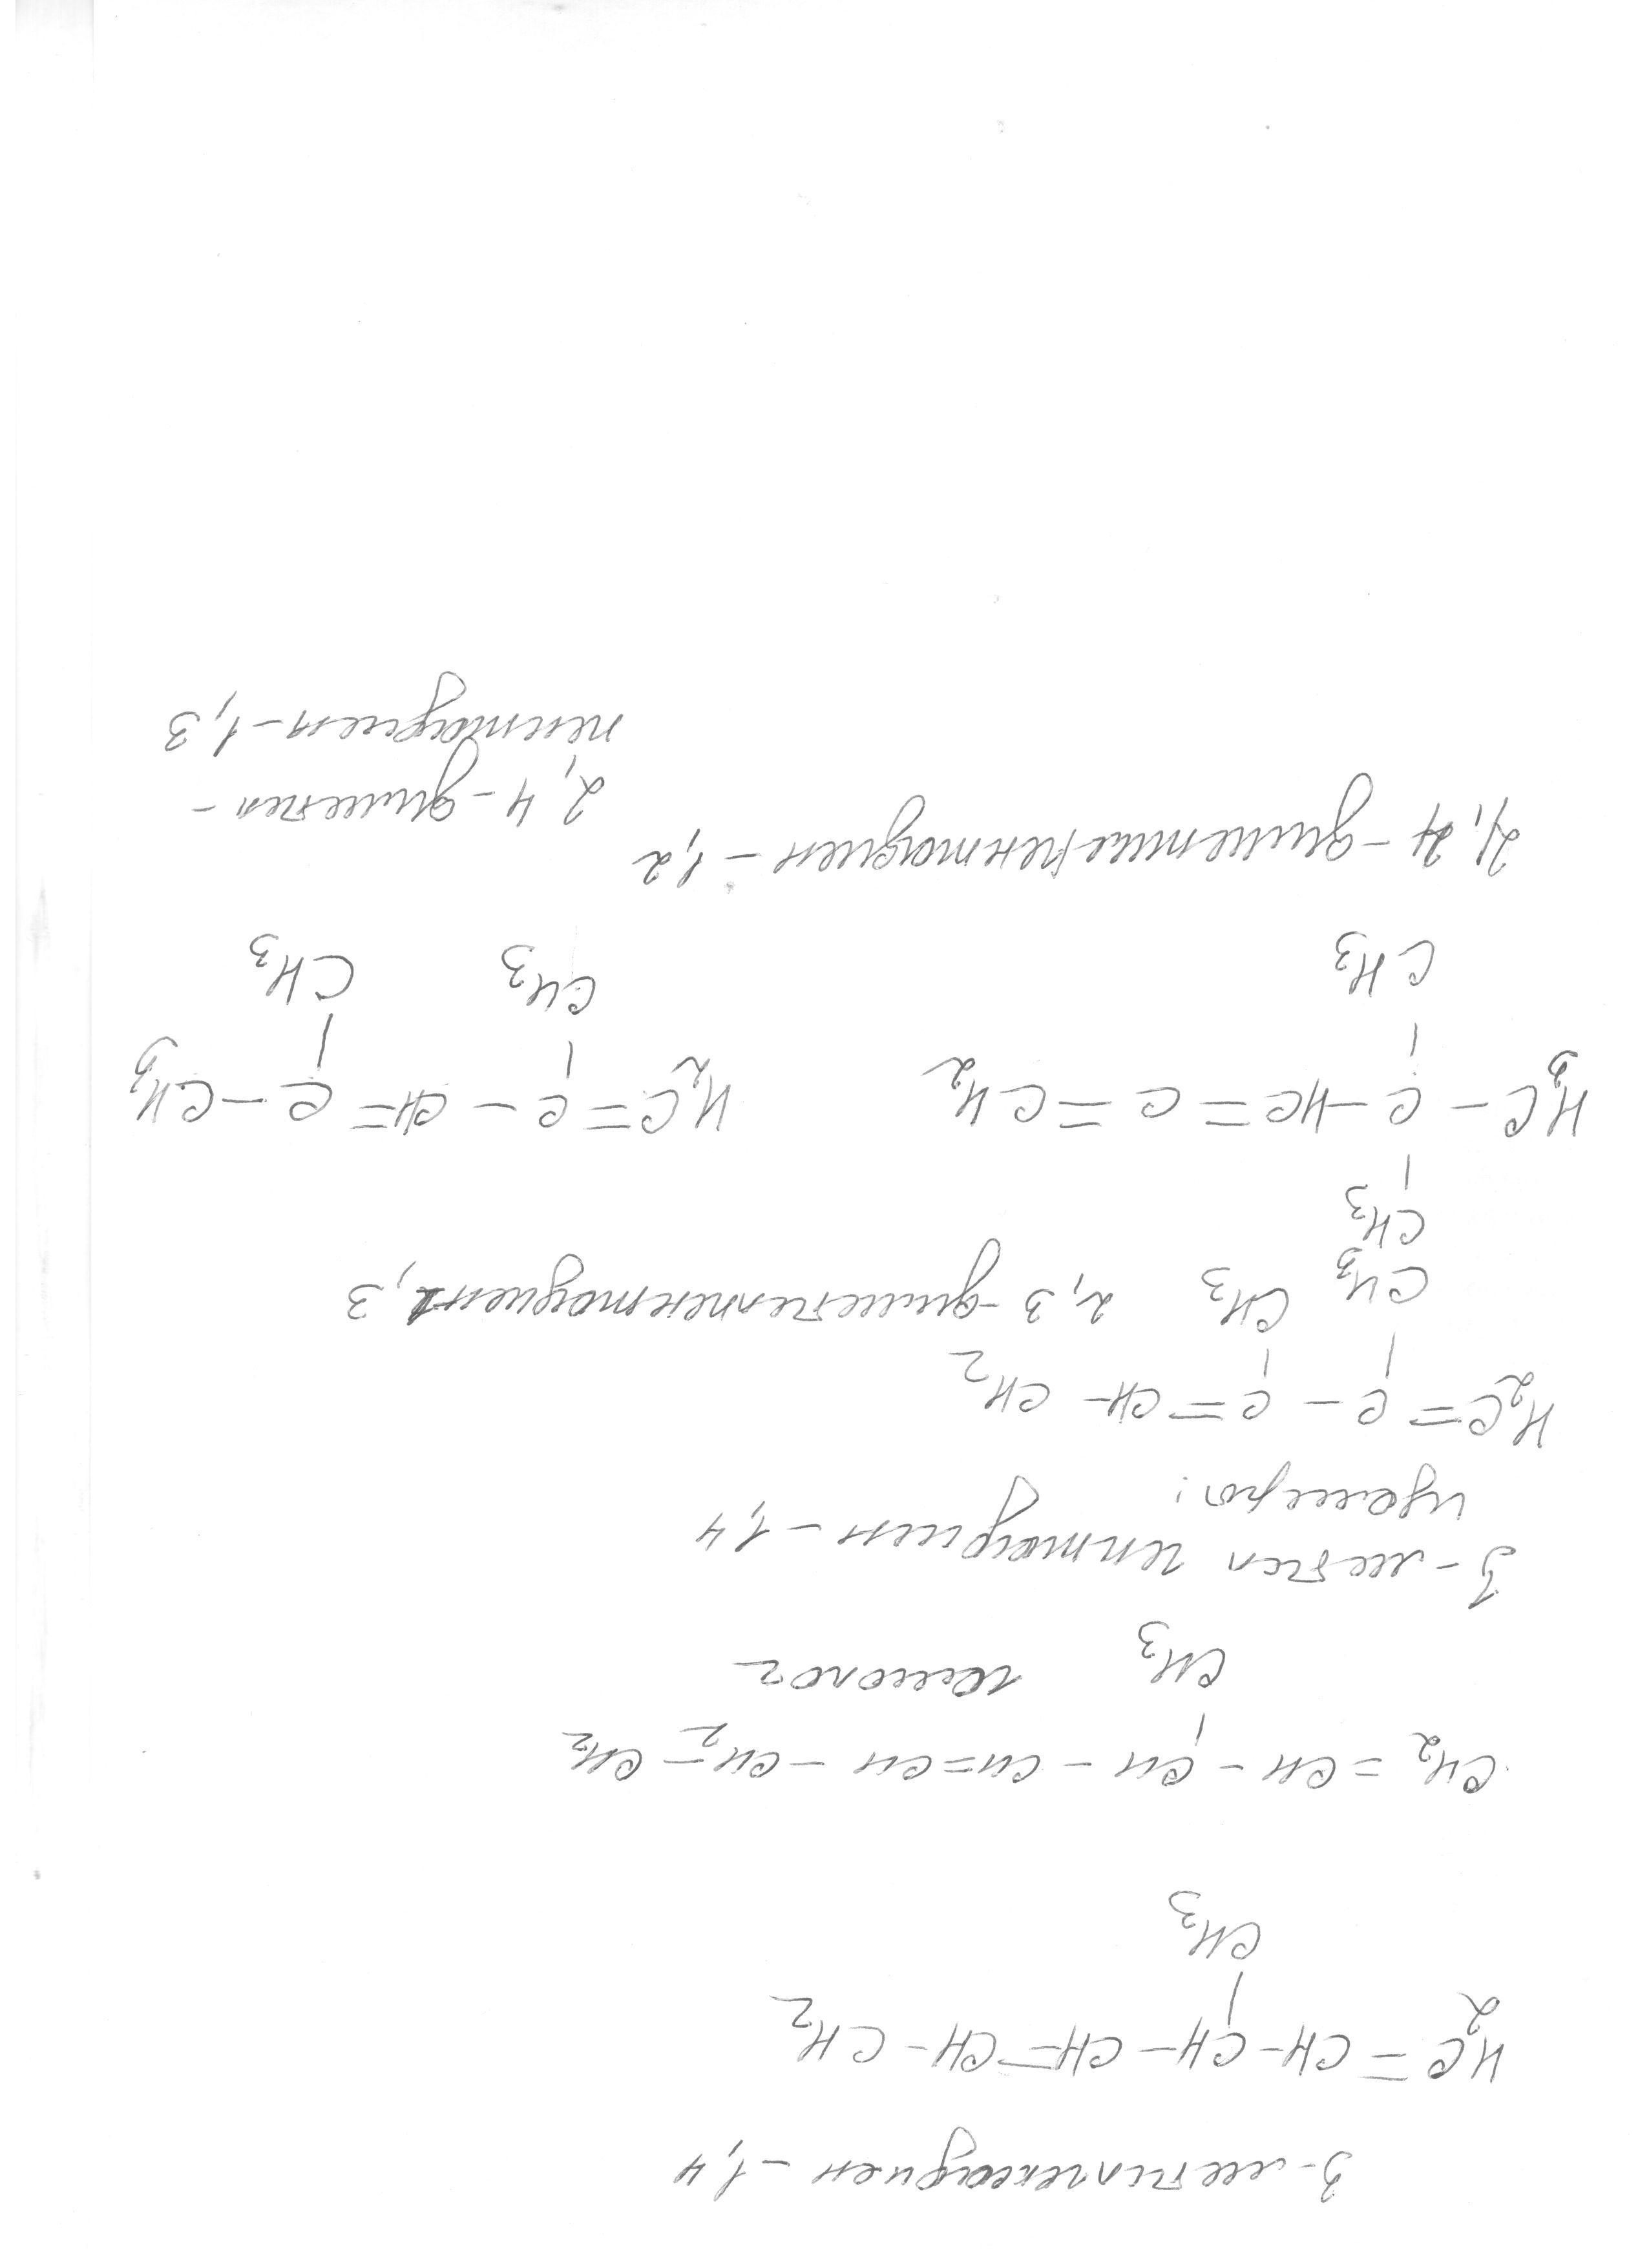 3-метилгексадиен-1,4
H2C=CH-CH-CH=CH-CH2
CH3
CH2=CH-CH-CH=CH-CH2-CH2
CH3 гомолог
3-метил гептадиен-1,4
изомеры:
H2C=C-C=CH-CH2
CH3 CH3 2,3-диметилпентадиен1,3
CH3
H3C-C-HC=C=CH2 H2C=C-CH=C-CH3
CH3 CH3 CH3
4,4-диметилпентадиен-1,2
2,4-диметил-
пентадиен-1,3